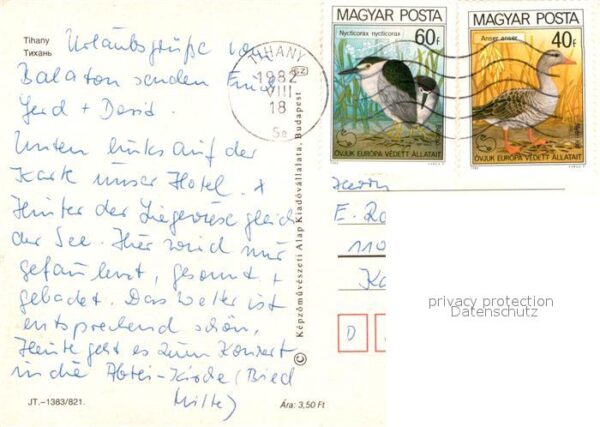 Tihany
Тихань
Urlaubsgrüße vom
Balaton senden Euch
Gerd + David.
Unten links auf der
Karte unser Hotel. +
Hinter der Liegewiese gleich
der See. Hier wird nur
gefaulenzt, gesonnt +
gebadet. Das Wetter ist
entsprechend schön,
Heute geht es zum Konzert
in die Abtei-Kirche (Bied
Mitte)
JT.–1383/821.
Ára: 3,50 Ft
© Képzőművészeti Alap Kiadóvállalata, Budapest
TIHANY
1982
VIII
18
MAGYAR POSTA
Nycticorax nycticorax
60f
ÓVJUK EURÓPA VÉDETT ÁLLATAIT
MAGYAR POSTA
Anser anser
40f
ÓVJUK EURÓPA VÉDETT ÁLLATAIT
E.
110
D
privacy protection
Datenschutz